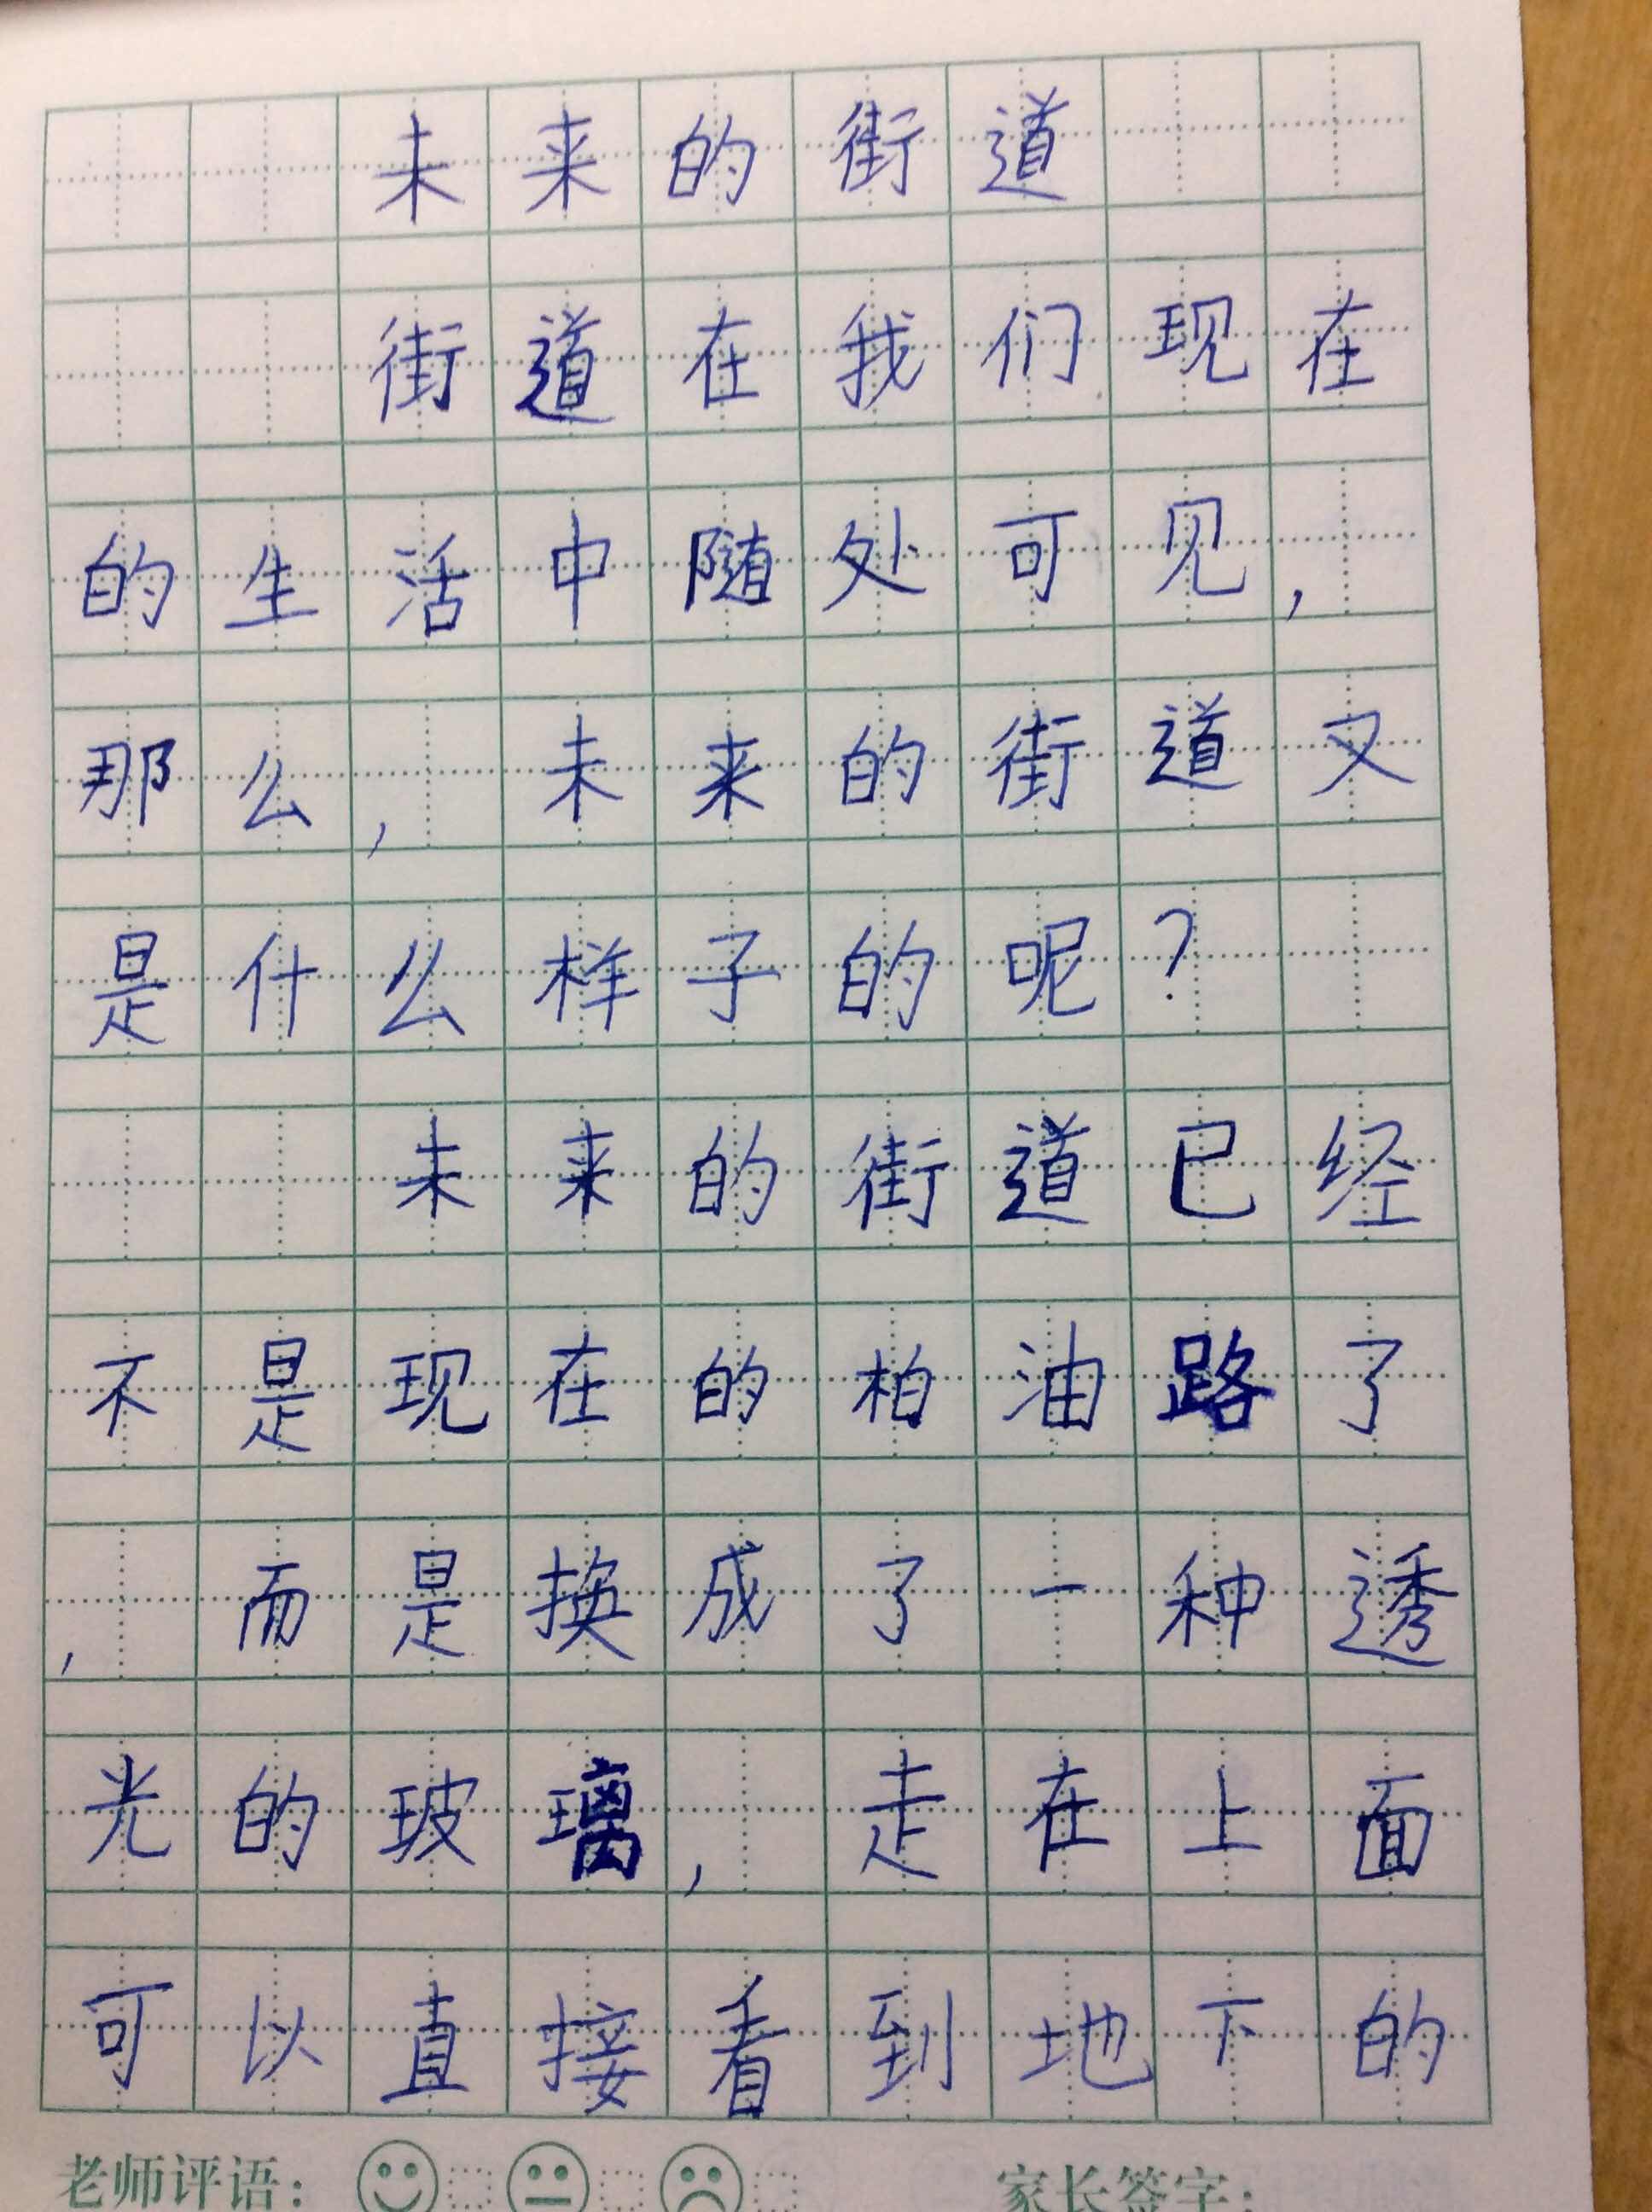 未来的街道
街道在我们现在
的生活中随处可见，
那么，未来的街道又
是什么样子的呢？
未来的街道已经
不是现在的柏油路了
，而是换成了一种透
光的玻璃，走在上面
可以直接看到地下的
老师评语： 家长签字：